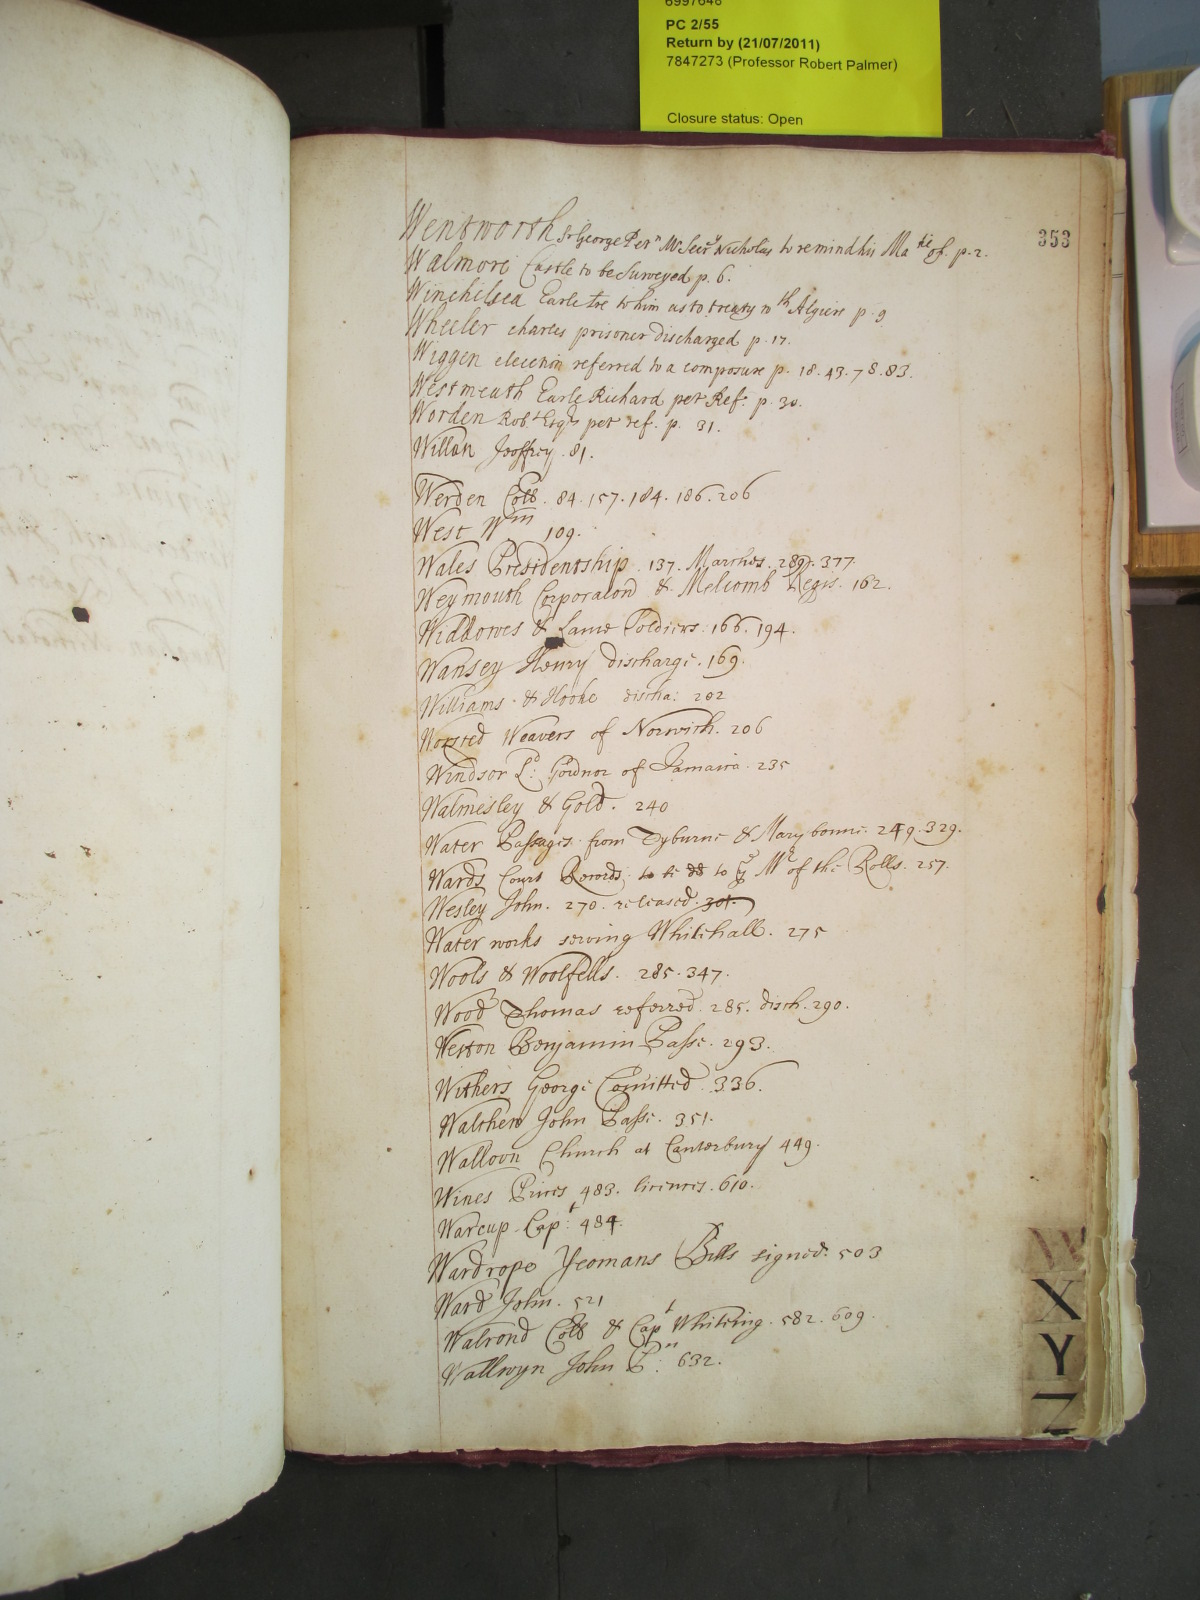 6997648
PC 2/55
Return by (21/07/2011)
7847273 (Professor Robert Palmer)
Closure status: Open
353
Wentworth Sr George Petn Mr Secry Nicholas to remind his Matie of. p. 2.
Walmore Castle to be Surveyed p. 6.
Winchilsea Earle tre to him as to treaty wth Algiers p. 9
Wheeler charles prisoner discharged p. 17.
Wiggen election referred to a composure p. 18. 43. 78. 83.
Westmeath Earle Richard pet Ref: p. 30.
Worden Robt Esqr pet ref. p. 31.
Willan Jeoffrey. 81.
Werden Coll. 84. 157. 184. 186. 206
West Wm 109.
Wales Presidentship. 137. Marches. 289. 377.
Weymouth Corporacon & Melcomb Regis. 162.
Widdowes & Lame Soldiers. 166. 194.
Wansey Henry discharge. 169.
Williams. & Hooke discha: 202
Worsted Weavers of Norwich. 206
Windsor Ld: Govrnor of Jamaica. 235
Walmesley & Gold. 240
Water Passages. from Tyburne & Marybonne. 249. 329.
Wards Court Records. to be dd to ye Mr of the Rolls. 257.
Wesley John. 270. released. 301.
Water works serving Whitehall. 275
Wools & Woolfells. 285. 347.
Wood Thomas referred. 285. disch. 290.
Weston Benjamin Passe. 293.
Withers George Comitted. 336.
Walcher John Passe. 351.
Walloon Church at Canterbury 449.
Wines Prices 483. licences. 610.
Warcup. Capt: 484.
Wardrope Yeomans Bills signed. 503
Ward John. 521
Walrond Coll & Capt Whiteing. 582. 609.
Wallwyn John Pn: 632.
W
X
Y
Z